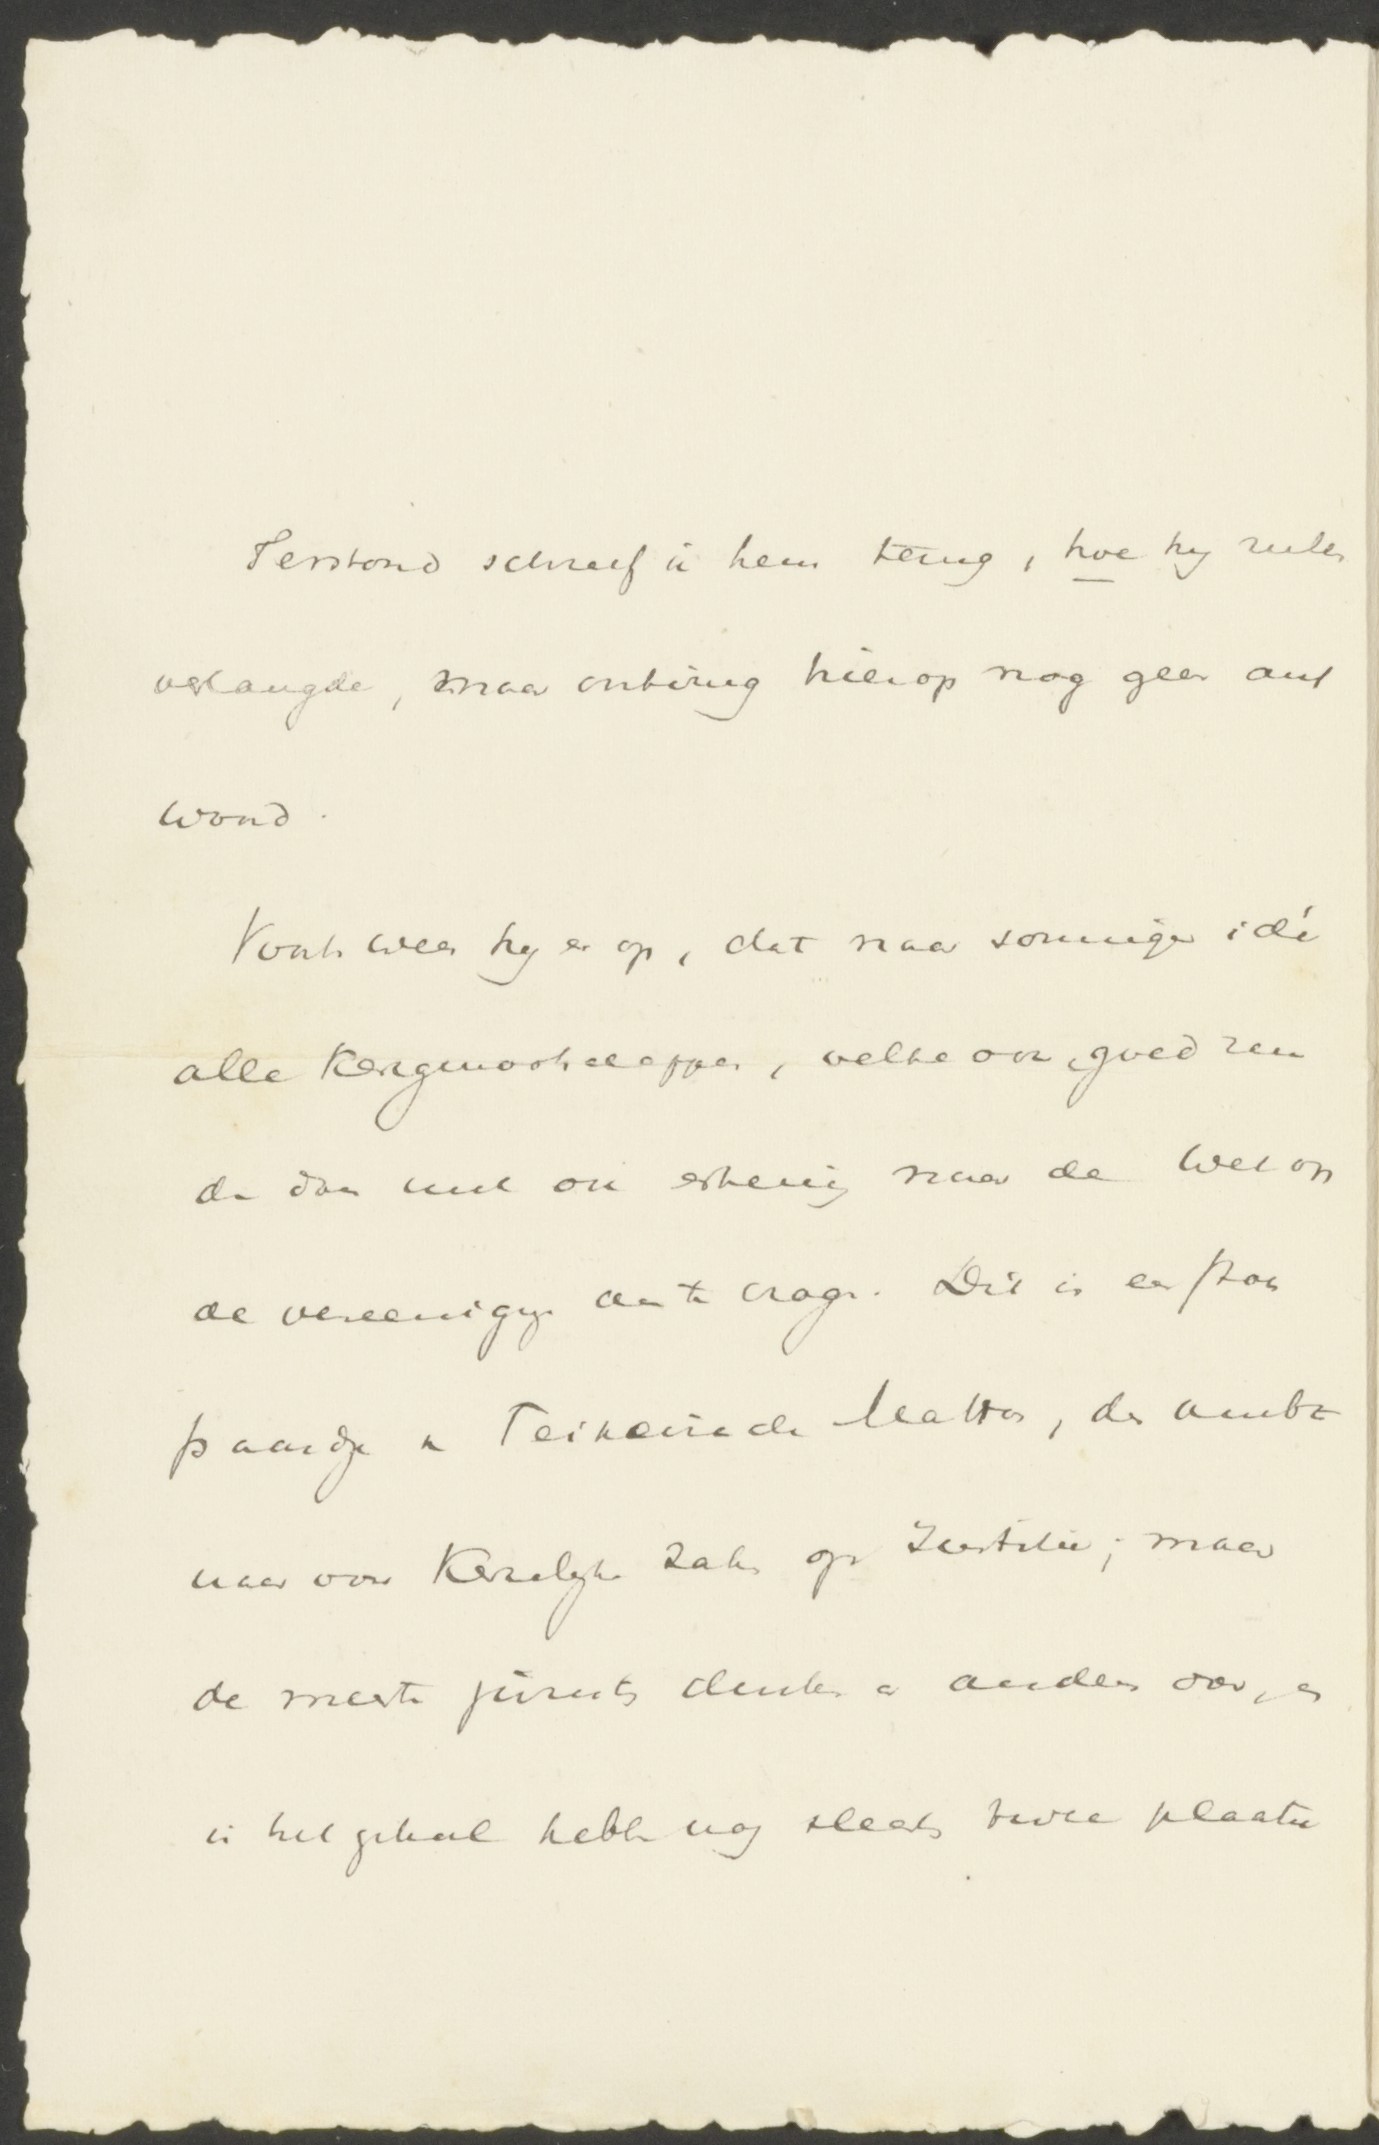 Terstond schreef ik hem terug, hoe hij zulks
verlangde, maar ontving hierop nog geen ant
woord.
Voorts wees hij er op, dat naar sommiger idé
alle Kerkgenootschappen, welke ons goed
de dan met om erkening naar de Wet op
de vereeniging aan te vragen. Dit is een stok
paardje v. Teixeira de Mattos, de ambte
naar voor Kerkelijke Zaken op Justitie; maar
de meeste juristen denken er anders over, en
in het geheel hebben nog slechts twee plaatse